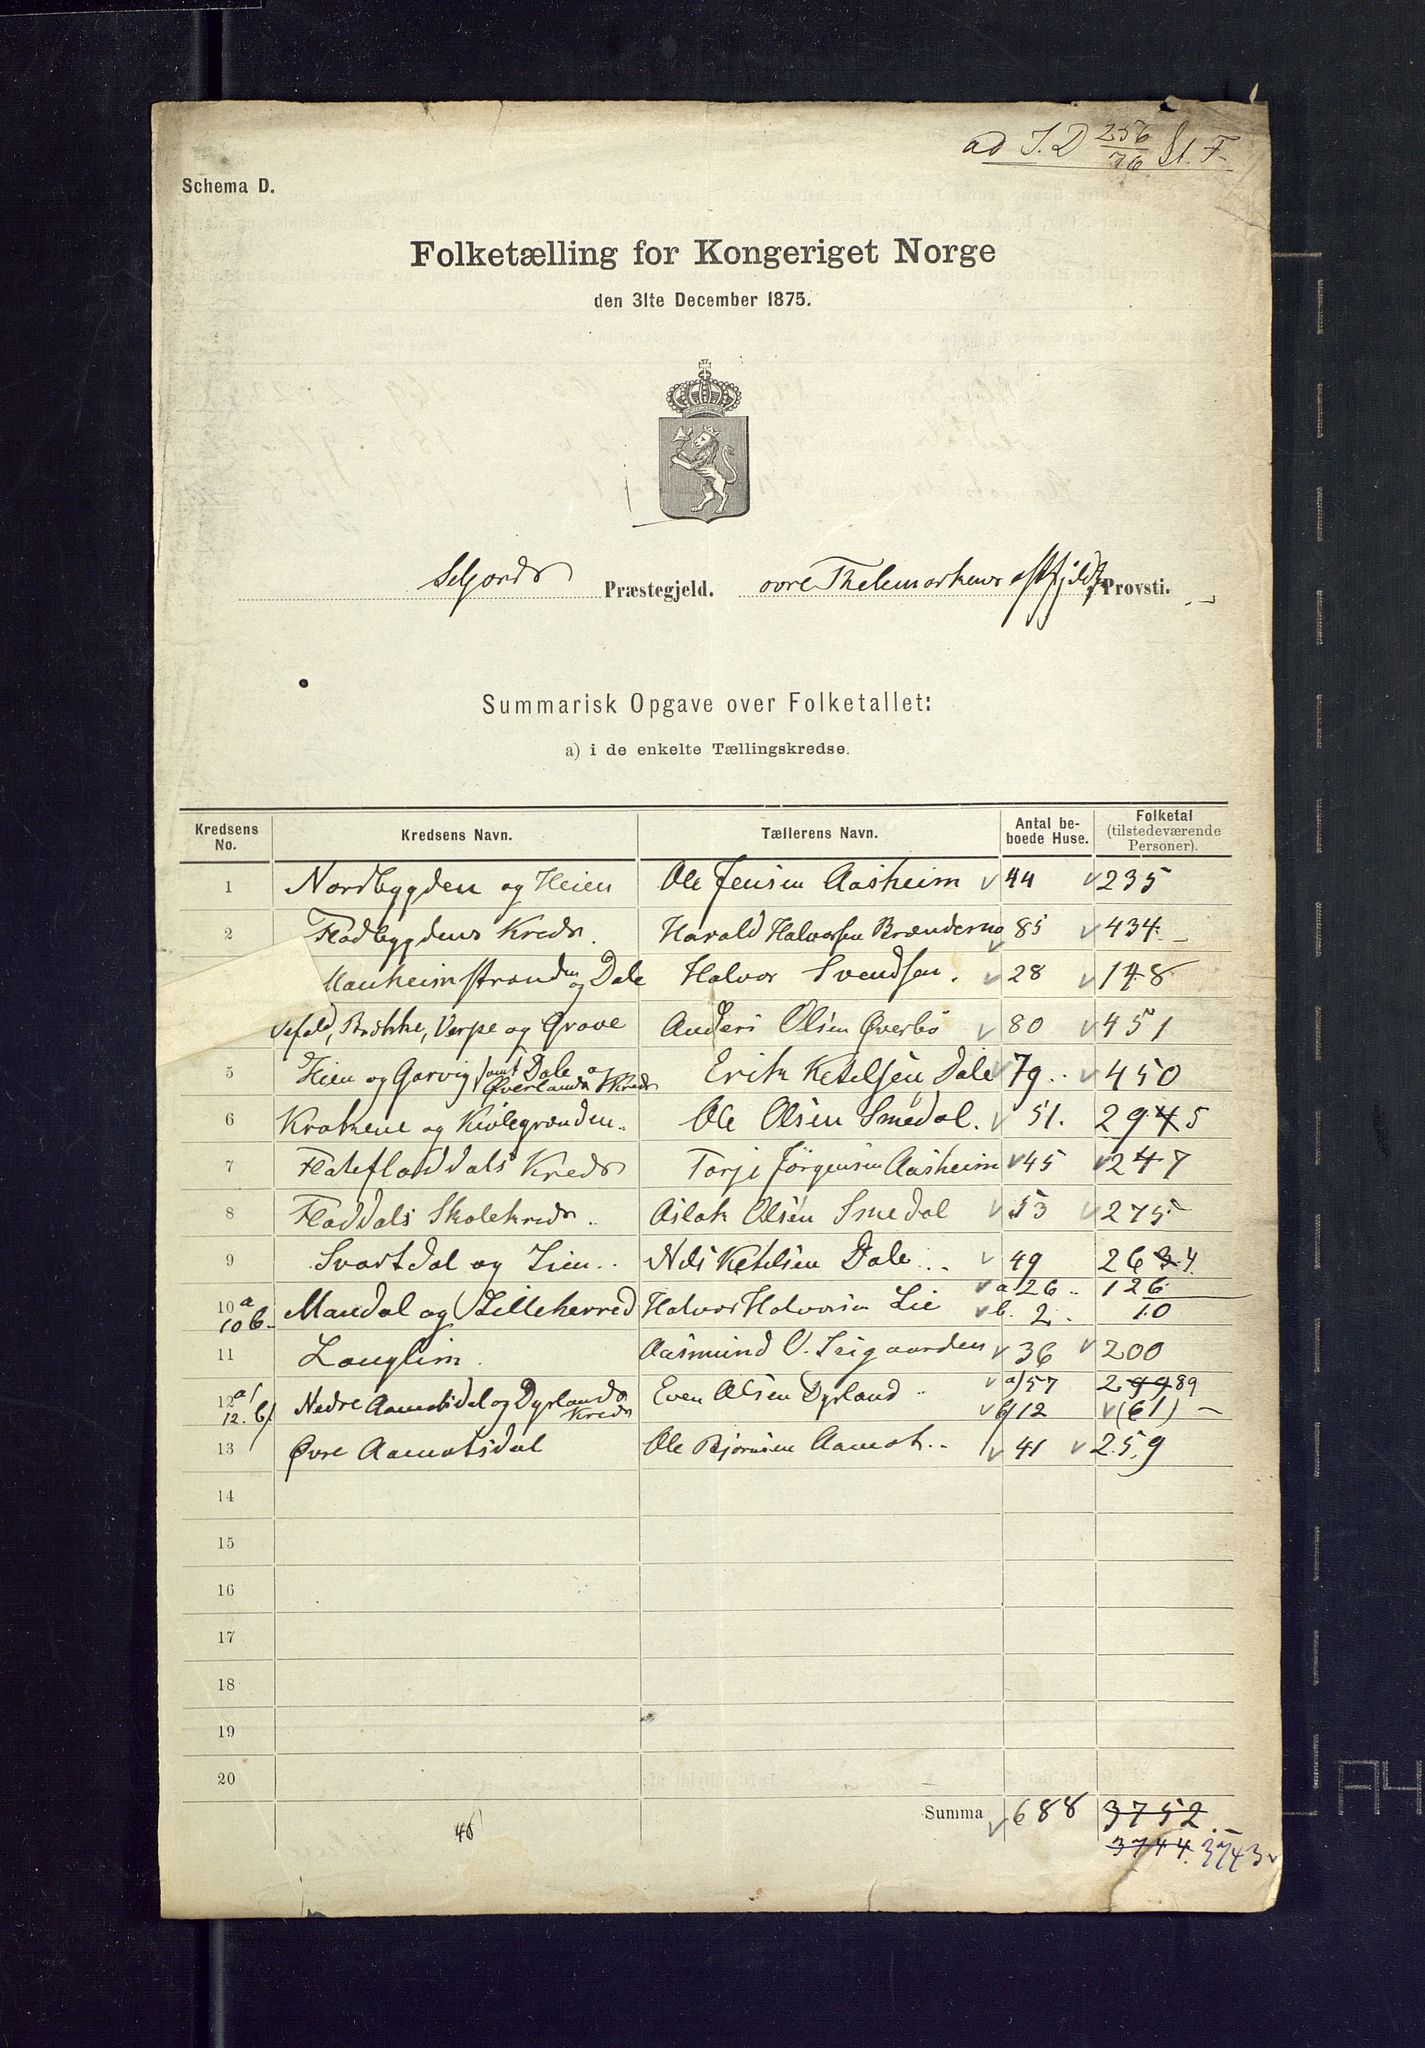 ad J. D 256/76 St. F.
Schema D.
Folketælling for Kongeriget Norge
den 31te December 1875.
Præstegjeld. Provsti.
Summarisk Opgave over Folketallet:
a) i de enkelte Tællingskredse.
Kredsens No. Kredsens Navn. Tællerens Navn. Antal beboede Huse. Folketal (tilstedeværende Personer).
1 Nordbygden og Heien Ole Jensen Aasheim 44 235
2 Flodbygdens Kreds. Harald Halvorsen 85 434
Manheimstranden og Dale Halvor Svendsen. 28 148
Bække, Verpe og Grave Anders Olsen Øverbö 80 451
5 Heien og Garvig samt Dale og Øverlands Kreds Erik Ketelsen Dale 79 450
6 og Olsen Smedal. 51. 2945
7 Kreds Torje Jørgensen Aasheim 45 247
8 Fladdals Skolekreds Aslak Olsen Smedal 53 275
9 Svartdal og Lien Nels Ketelsen Dale 49 2634
10 a Mandal og Lilleherred Halvor Halvorsen Lie a 26 126
10 b. b. 2 10
11 Langlim Aasmund O. 36 200
12 a Nedre Aamotsdal og Dyrlands Kreds Even Olsen Dyrland a) 57 29989
12. b) b) 12 (61)
13 Øvre Aamotsdal Ole Bjørnsen Aamot 41 259
14
15
16
17
18
19
20
Summa 688 3752
46 3744 3743